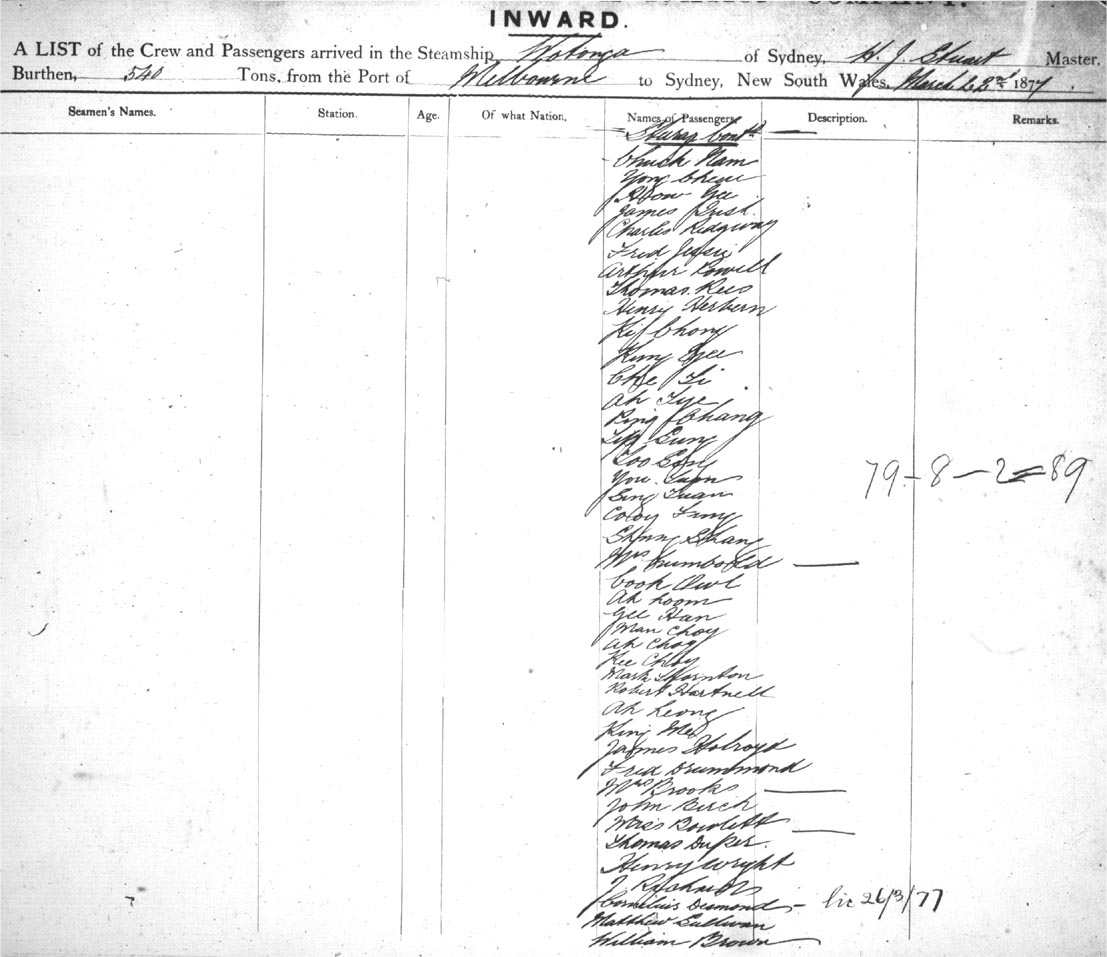 INWARD.
A LIST of the Crew and Passengers arrived in the Steamship Wotonga of Sydney, H. J. Stuart Master.
Burthen, 540 Tons. from the Port of Melbourne to Sydney, New South Wales, March 22nd 1877.
Seamen's Names. Station. Age. Of what Nation, Names of Passengers Description. Remarks.
Steerage Contd
Chuck Nam
Yong
Gee
James
Charles Ridgway
Fred
Arthur Powell
Thomas Rees
Henry
Chong
Kung Gee
Che Li
Ah Tye
Ping Chang
Gung
Too
79-8-2=89
You
Sing Tuan
Fung
Mrs Rumbold
Cook
Ah hoom
Gee Han
Man Choy
Ah Choy
Kee Choy
Mark Thornton
Robert Hartnell
Ah Leong
King
James Holroyd
Fred Drummond
Mrs Brooks
John Birch
Miss Bowlett
Thomas
Henry Wright
J
Cornelius Desmond - lic 26/3/77
Matthew Sullivan
William Brown